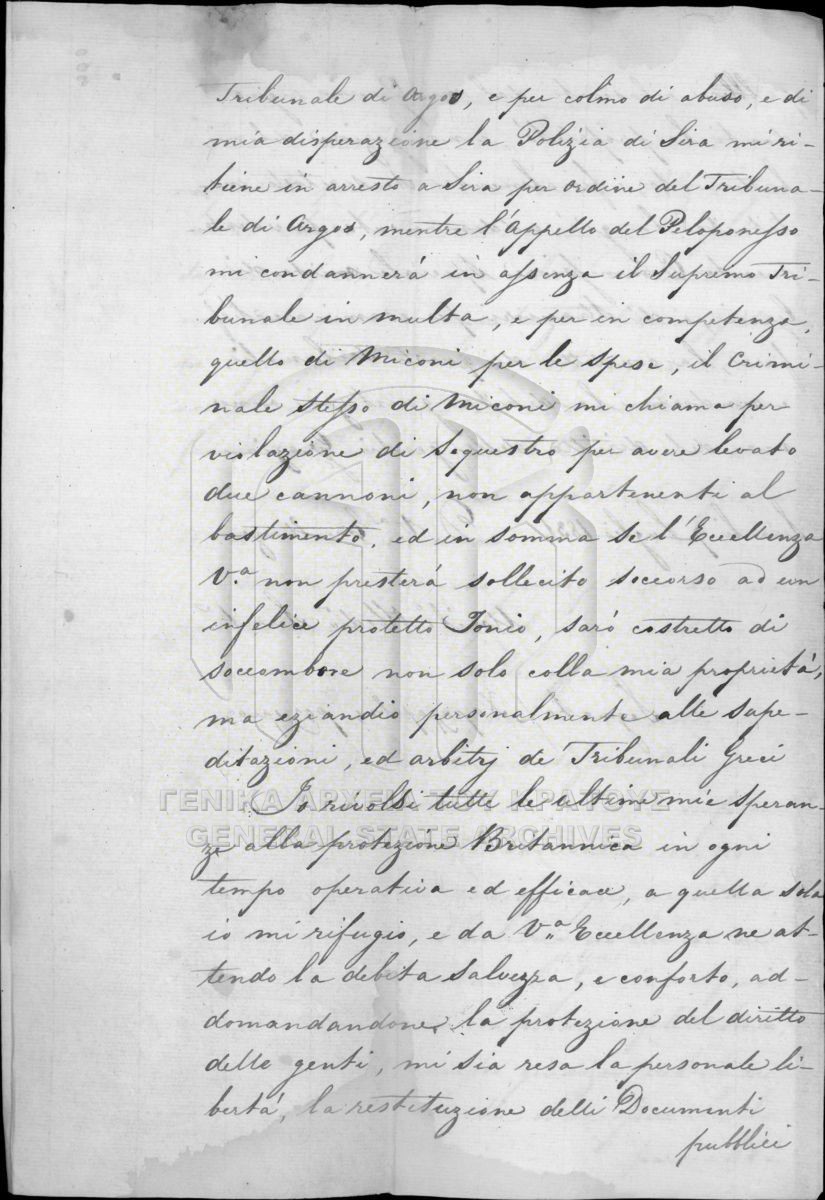 Tribunale di Argos, e per colmo di abuso, e di
mia disperazione la Polizia di Sira mi ri-
tiene in arresto a Sira per ordine del Tribuna-
le di Argos, mentre l'Appello del Peloponesso
mi condannerá in assenza il Supremo Tri-
bunale in multa, e per in competenza,
quello di Miconi per le spese, il Crimi-
nale stesso di Miconi mi chiama per
violazione di Sequestro per avere levato
due cannoni, non appartenenti al
bastimento, ed in somma se l'Eccellenza
V.a non presterá sollecito soccorso ad un
infelice protetto Jonio, saró costretto di
soccombere non solo colla mia proprietá,
ma eziandio personalmente alle sape-
ditazioni, ed arbitrj de Tribunali Greci
Io rivolsi tutte le ultime mie speran-
ze alla protezione Britannica in ogni
tempo operativa ed efficace, a quella sola
io mi rifugio, e da V.a Eccellenza ne at-
tendo la debita salvezza, e conforto, ad-
domandandone la protezione del diritto
delle genti, mi sia resa la personale li-
bertá, la restituzione delli Documenti
pubblici
ΓΕΝΙΚΑ ΑΡΧΕΙΑ ΤΟΥ ΚΡΑΤΟΥΣ
GENERAL STATE ARCHIVES